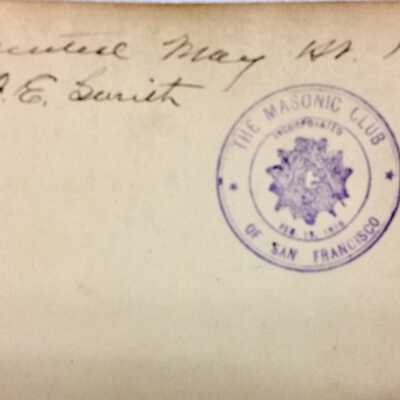 May 1st.
E. Smith
THE MASONIC CLUB
INCORPORATED
FEB. 15,
OF SAN FRANCISCO